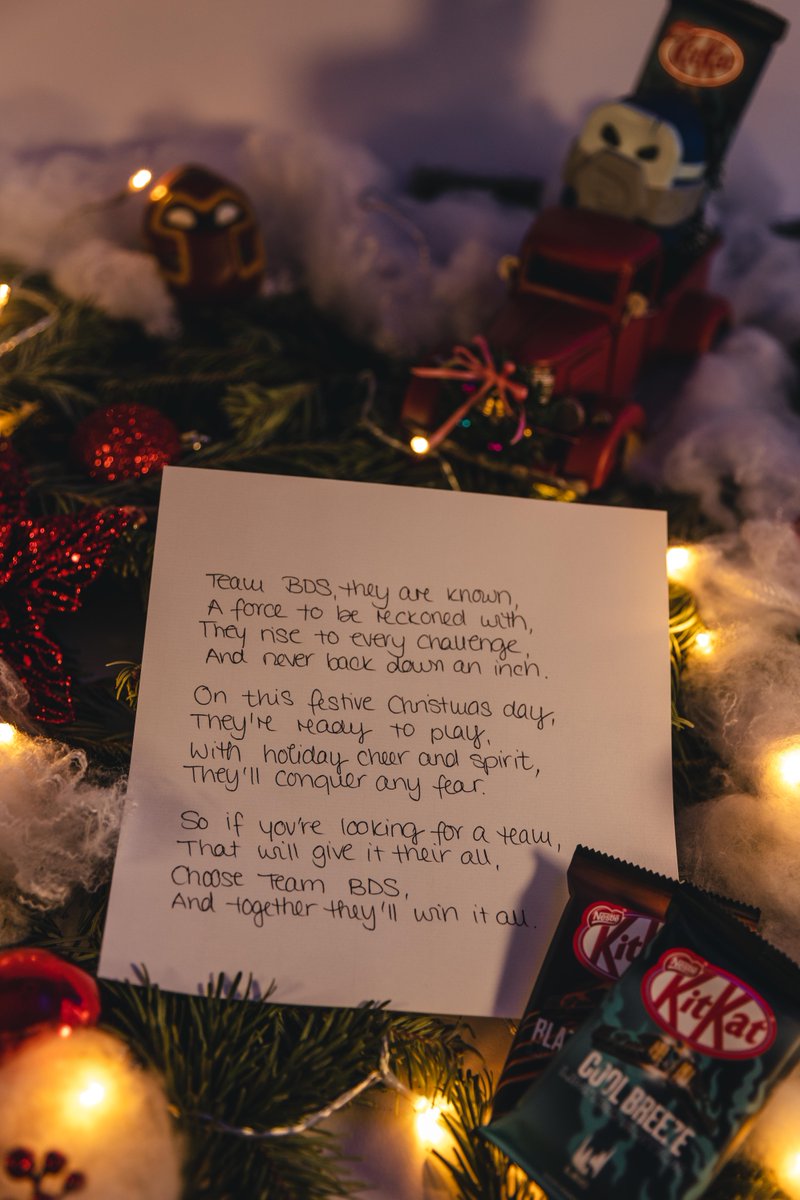 KitKat
Team BDS, they are known,
A force to be reckoned with,
They rise to every challenge,
And never back down an inch.
On this festive Christmas day,
They're ready to play,
With holiday cheer and spirit,
They'll conquer any fear.
So if you're looking for a team,
That will give it their all,
Choose Team BDS,
And together they'll win it all.
Nestlé
Nestlé
KitKat
COOL BREEZE